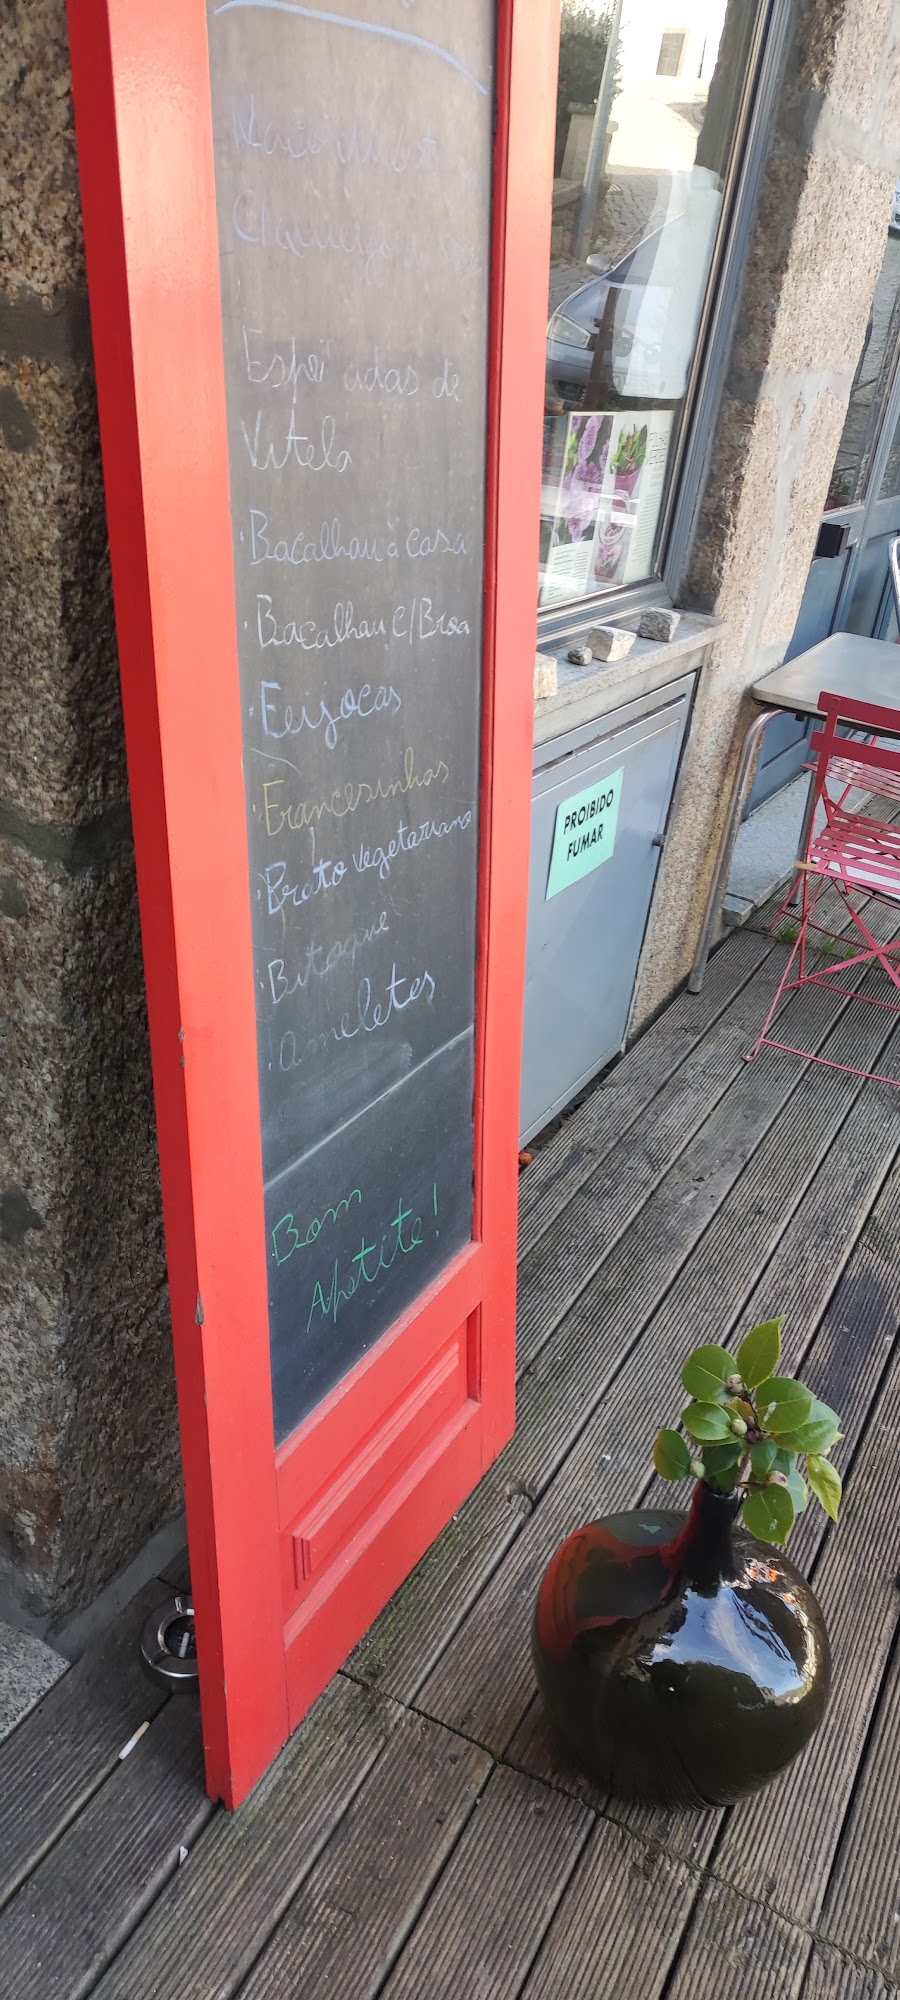 Espetadas de
Vitela
Bacalhau à casa
Bacalhau c/Broa
Francesinhas
Prato vegetariano
Bitoque
omeletes
Bom
Apetite!
PROIBIDO
FUMAR